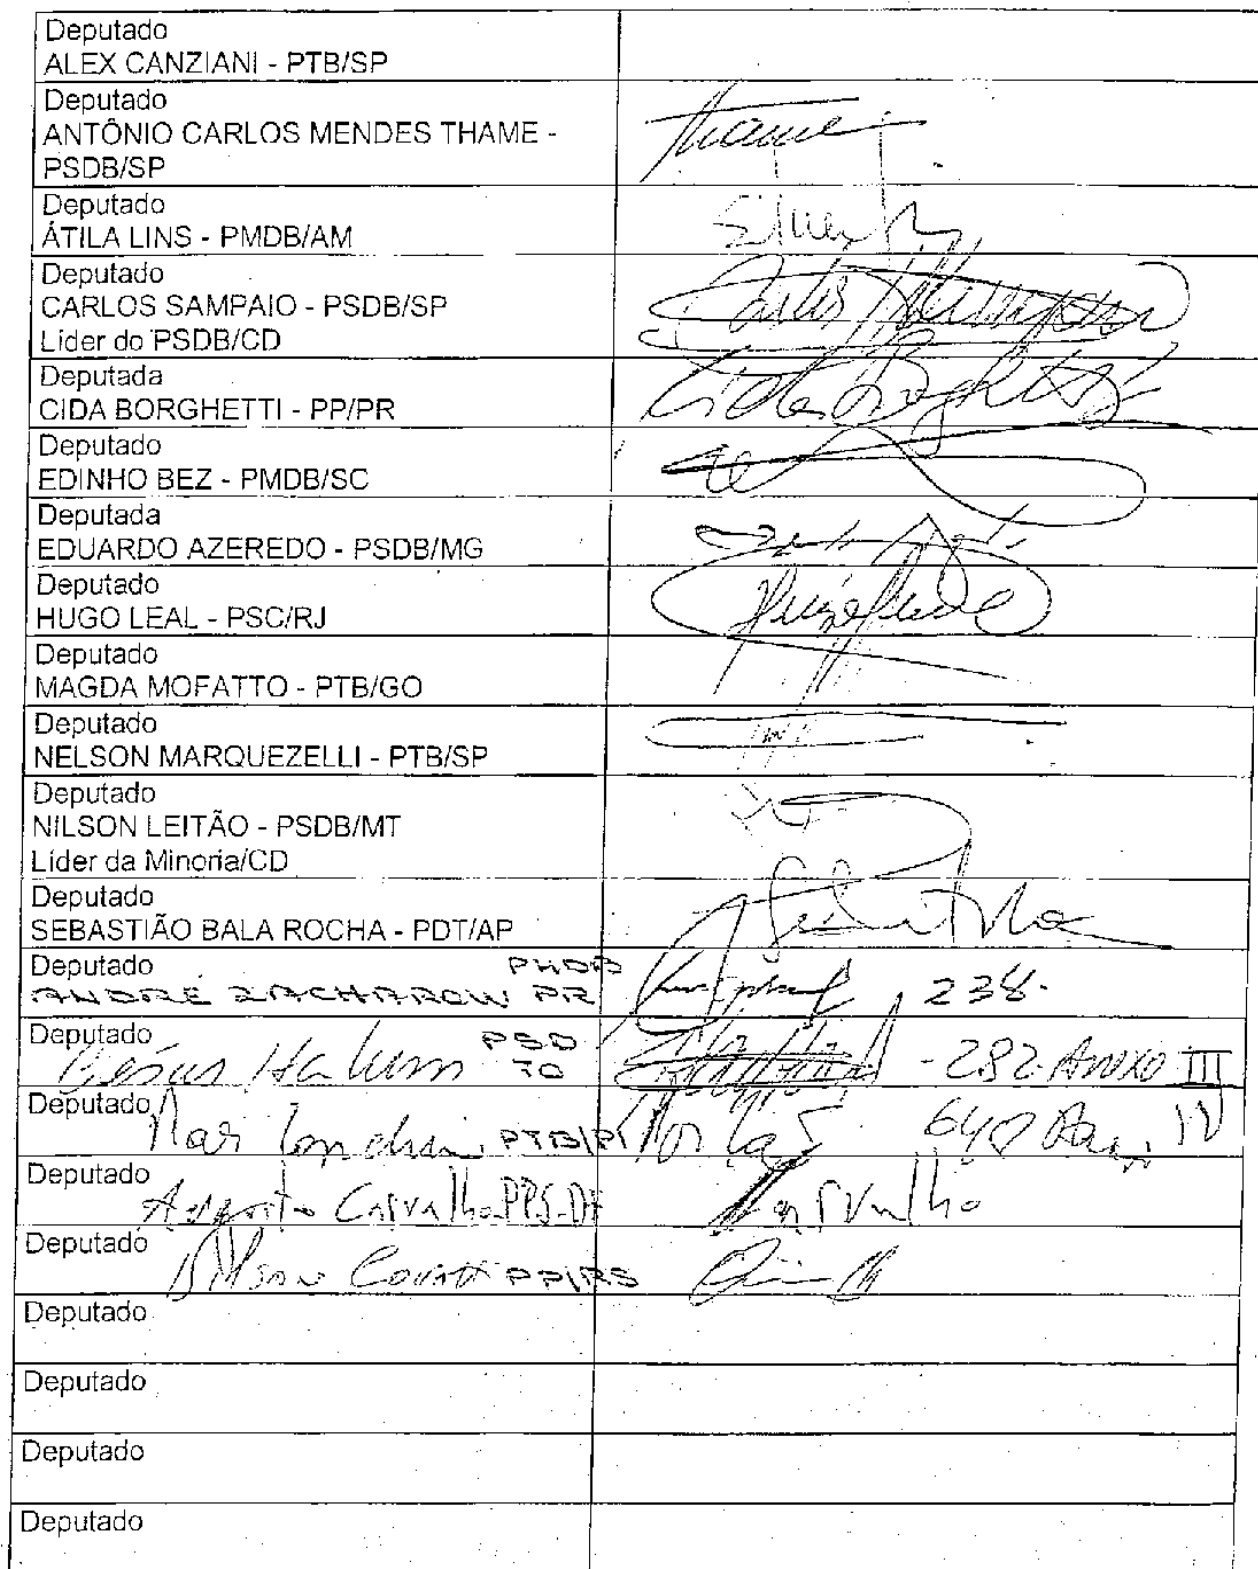 Deputado
ALEX CANZIANI - PTB/SP
Deputado
ANTÔNIO CARLOS MENDES THAME -
PSDB/SP
Thame
Deputado
ÁTILA LINS - PMDB/AM
Deputado
CARLOS SAMPAIO - PSDB/SP
Líder do PSDB/CD
Carlos Sampaio
Deputada
CIDA BORGHETTI - PP/PR
Cida Borghetti
Deputado
EDINHO BEZ - PMDB/SC
Deputada
EDUARDO AZEREDO - PSDB/MG
Deputado
HUGO LEAL - PSC/RJ
Deputado
MAGDA MOFATTO - PTB/GO
Deputado
NELSON MARQUEZELLI - PTB/SP
Deputado
NILSON LEITÃO - PSDB/MT
Líder da Minoria/CD
Deputado
SEBASTIÃO BALA ROCHA - PDT/AP
Deputado PMDB
ANDRÉ ZACHAROW PR 238.
Deputado PSD
César Halum TO - 282. Anexo III
Deputado
PTB/PI 640 IV
Deputado
Augusto Carvalho PPS-DF Carvalho
Deputado
Vilson Covatti PP/RS
Deputado
Deputado
Deputado
Deputado